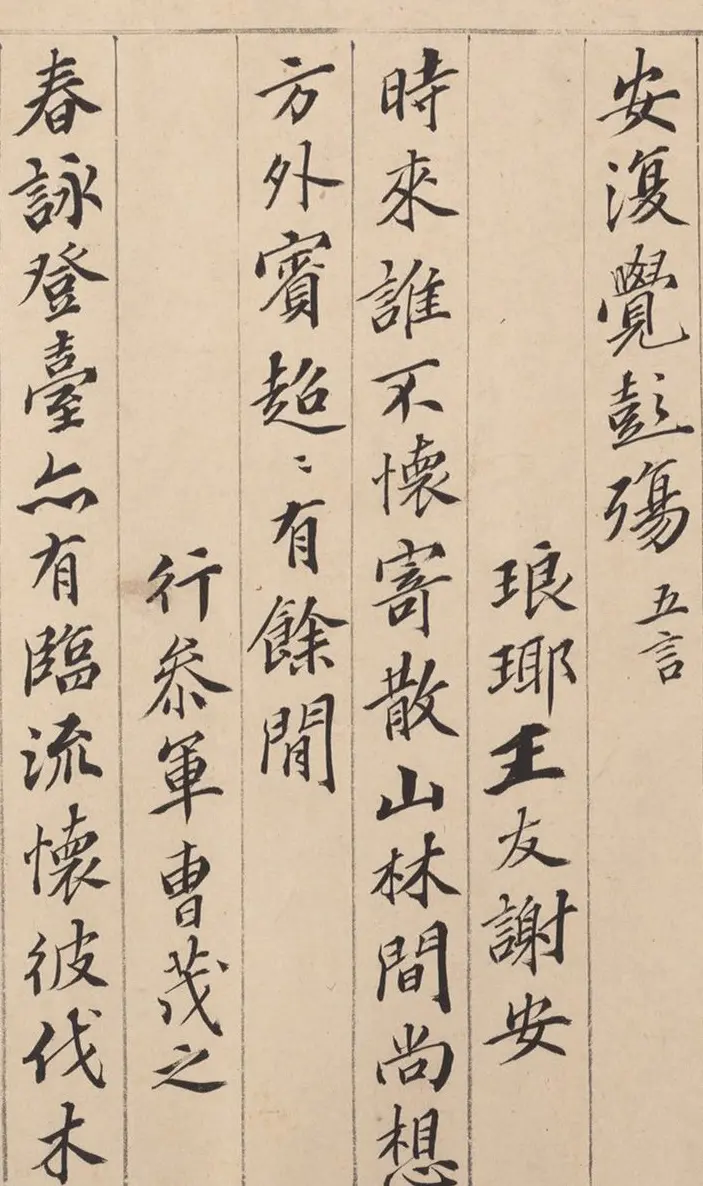 安復覺彭殤 五言
琅瑘王友謝安
時來誰不懷寄散山林間尚想
方外賓超〻有餘閒
行叅軍曹茂之
春詠登臺亦有臨流懷彼伐木